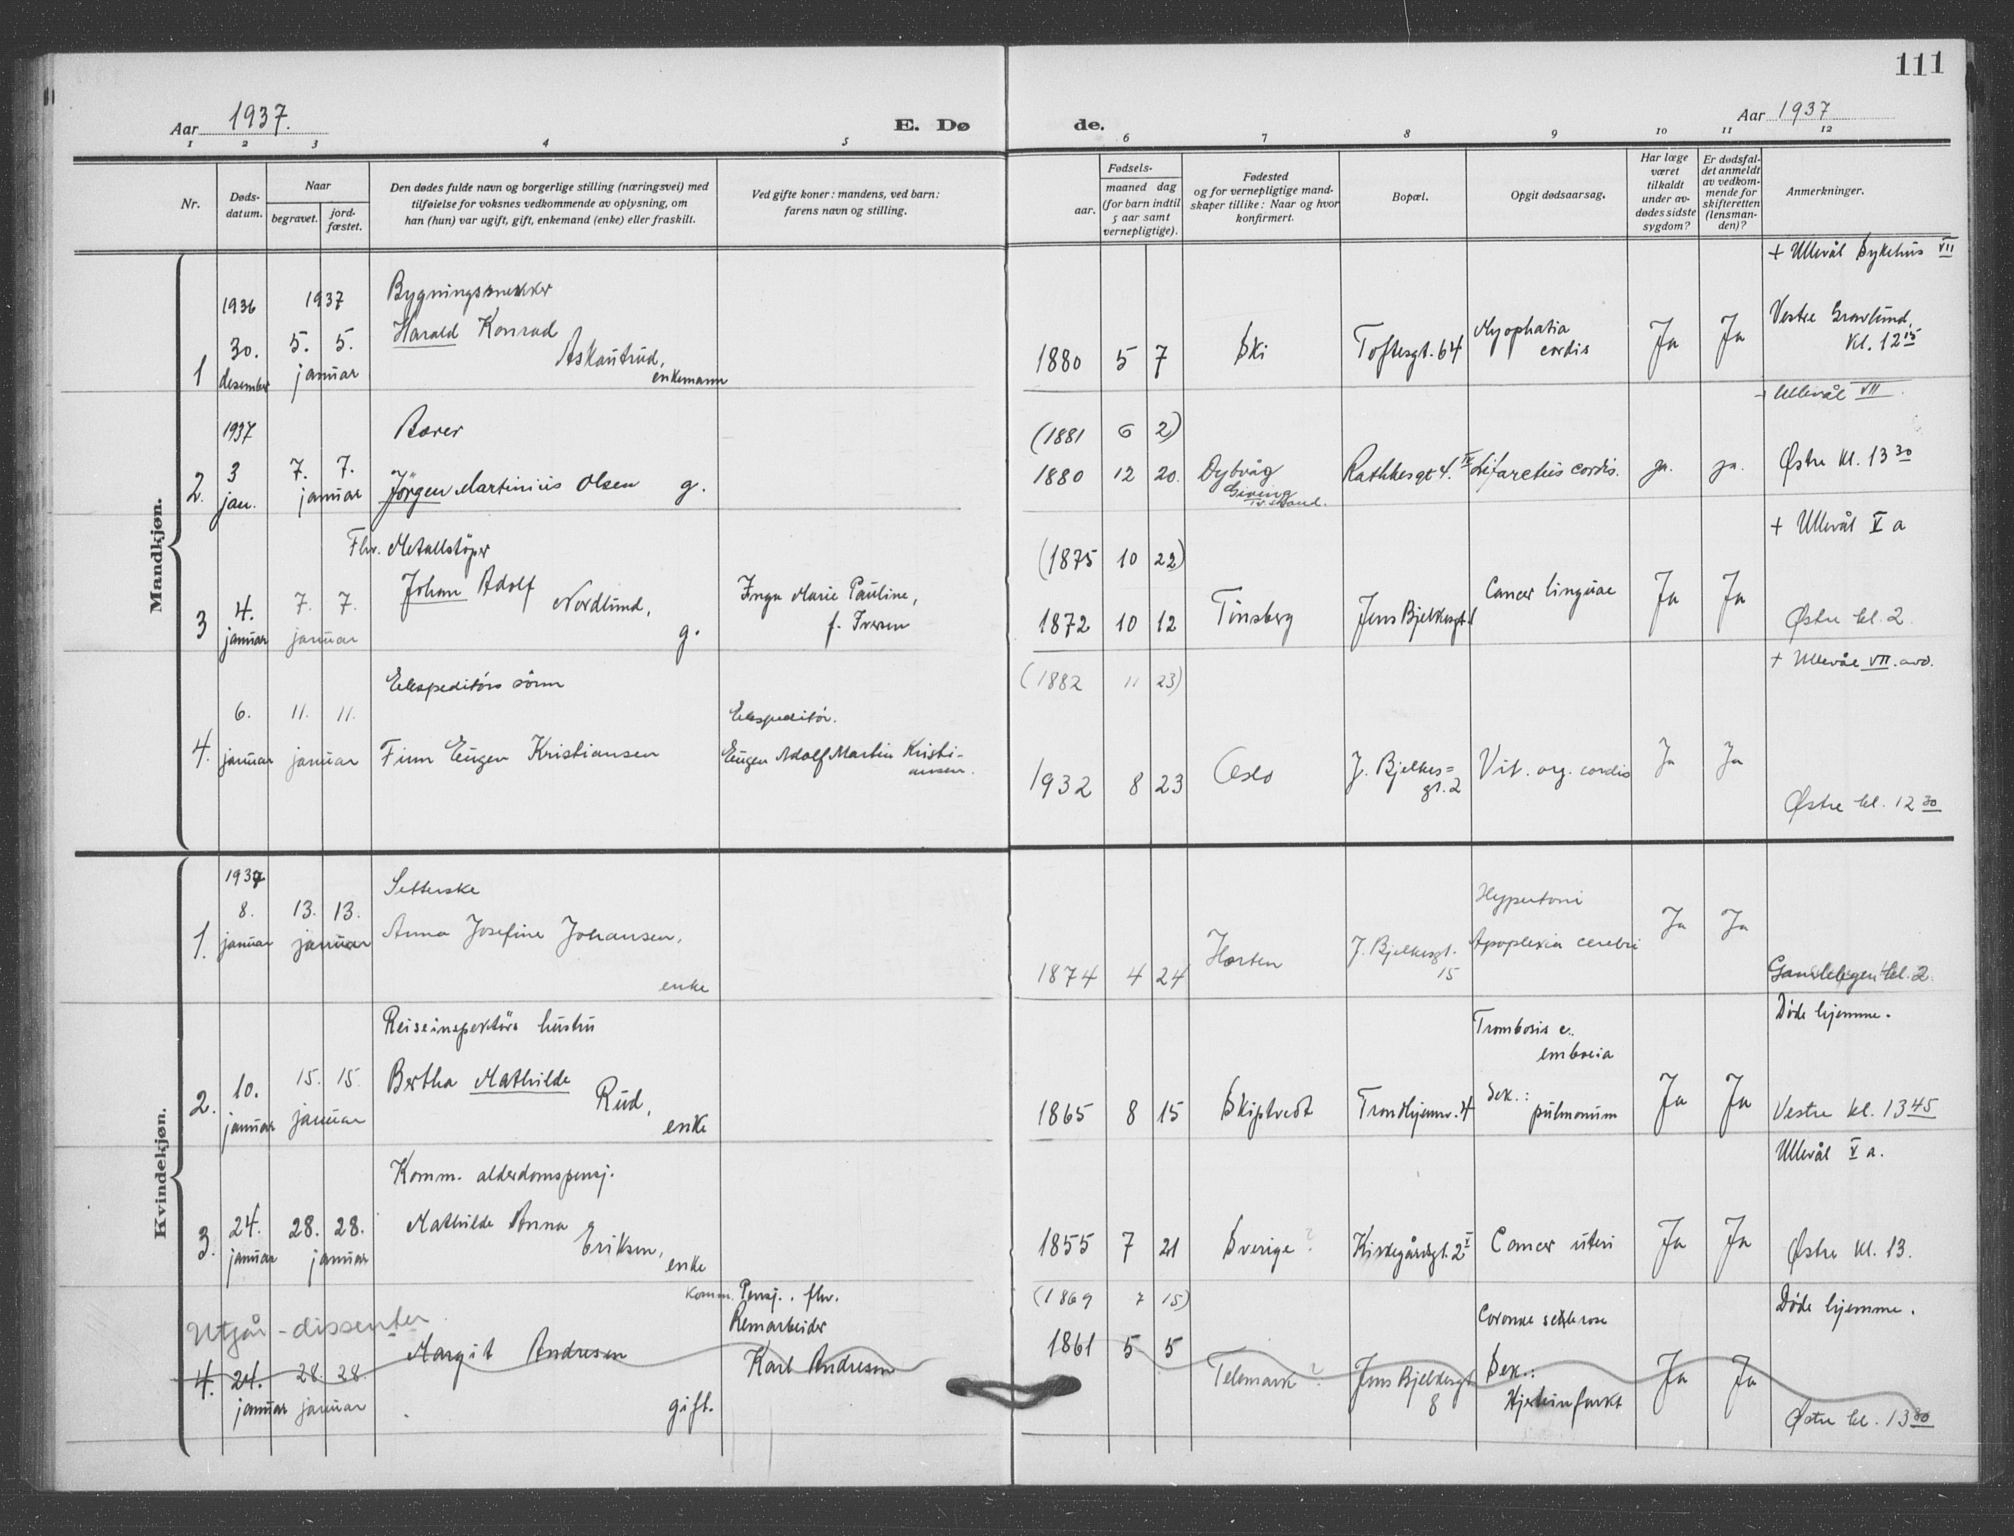 111
Aar 1937.
E. Dø
de.
Aar 1937
1 2 3 4 5 6 7 8 9 10 11 12
Nr.
Døds-
datum.
Naar
begravet.
jord-
fæstet.
Den dødes fulde navn og borgerlige stilling (næringsvei) med
tilføielse for voksnes vedkommende av oplysning, om
han (hun) var ugift, gift, enkemand (enke) eller fraskilt.
Ved gifte koner: mandens, ved barn:
farens navn og stilling.
Fødsels-
aar.
maaned dag
(for barn indtil
5 aar samt
vernepligtige).
Fødested
og for vernepligtige mand-
skaper tillike: Naar og hvor
konfirmert.
Bopæl.
Opgit dødsaarsag.
Har læge
været
tilkaldt
under av-
dødes sidste
sygdom?
Er dødsfal-
det anmeldt
av vedkom-
mende for
skifteretten
(lensman-
den)?
Anmerkninger.
Mandkjøn.
+ Ullevål Sykehus VII
1936 1937 Bygningssnekker
30. 5. 5. Harald Konrad
Askautrud,
1 desember januar enkemann
1880 5 7 Ski Toftesgt. 64
Myophatia
cordis
Ja Ja
Vestre Gravlund,
Kl. 12 15
+ Ullevål VII.
1937 Bærer
(1881 6 2)
2. 3 7. 7. Jörgen Martinius Olsen g.
jan. januar
1880 12 20. Dybvåg
Rathkesgt 4. IV cordis. ja. ja. Østre kl. 13 30
+ Ullevål V a
Fhv. Metallstöper
(1875 10 22)
4. 7. 7. Johan Adolf
Nordlund,
3 januar januar g.
Inga Marie Pauline,
f. Iversen
1872 10 12 Tönsberg Jens Bjelkesgt.
Cancer linguae Ja Ja
Østre kl. 2.
+ Ullevål VII. avd.
Ekspeditörs sönn
(1882 11 23)
6. 11. 11. Ekspeditör.
4. januar januar Finn Eugen Kristiansen Eugen Adolf Martin Kristi-
ansen.
1932 8 23 Oslo J. Bjelkes=
gt. 2 Vit. org. cordis Ja Ja
Østre kl. 12 30
Kvindekjøn.
1937 Setterske
8. 13. 13. Anna Josefine Johansen,
1. januar januar enke
1874 4 24 Horten J. Bjelkesgt.
15
Hypertoni
Apoplexia cerebri
Ja Ja
Gamlebyen kl. 2.
Döde hjemme.
Reiseinspektörs hustru
10. 15. 15. Bertha Mathilde
Rud,
2. januar januar enke
1865 8 15 Skiptvedt Trondhjemsv. 4
Trombosis e.
Sek.:
pulmonum
Ja Ja
Vestre kl. 13 45
Ullevål V a.
Komm. alderdomspensj.
24. 28. 28. Mathilde Anna
Eriksen,
3. januar januar enke
1855 7 21 Sverige ? Kirkegårdsgt. 2 I Cancer uteri Ja Ja
Østre kl. 13.
Döde hjemme.
Komm. Pensj. . fhv.
(1869 7 15)
Utgår - dissenter
4. 24. 28. 28. Margit Andresen Karl Andresen
januar januar gift.
1861 5 5 Telemark ? Jens Bjelkesgt
8
Sek.:
Hjerteinfarkt
Ja Ja
Østre kl. 13 30